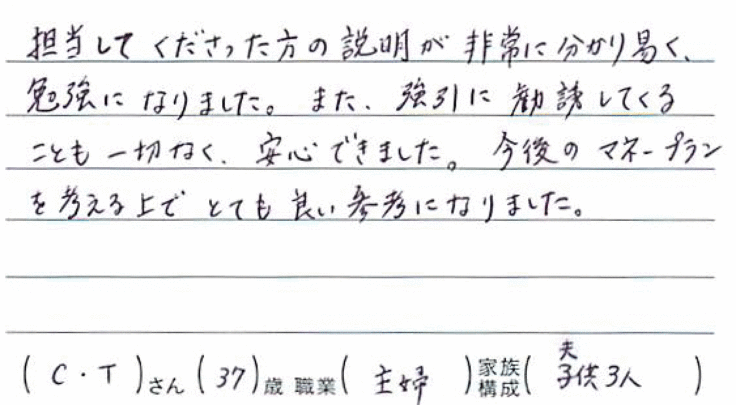 担当してくださった方の説明が非常に分かり易く、
勉強になりました。また、強引に勧誘してくる
ことも一切なく、安心できました。今後のマネープラン
を考える上でとても良い参考になりました。
(C・T)さん(37)歳 職業(主婦)家族構成(夫 子供3人)